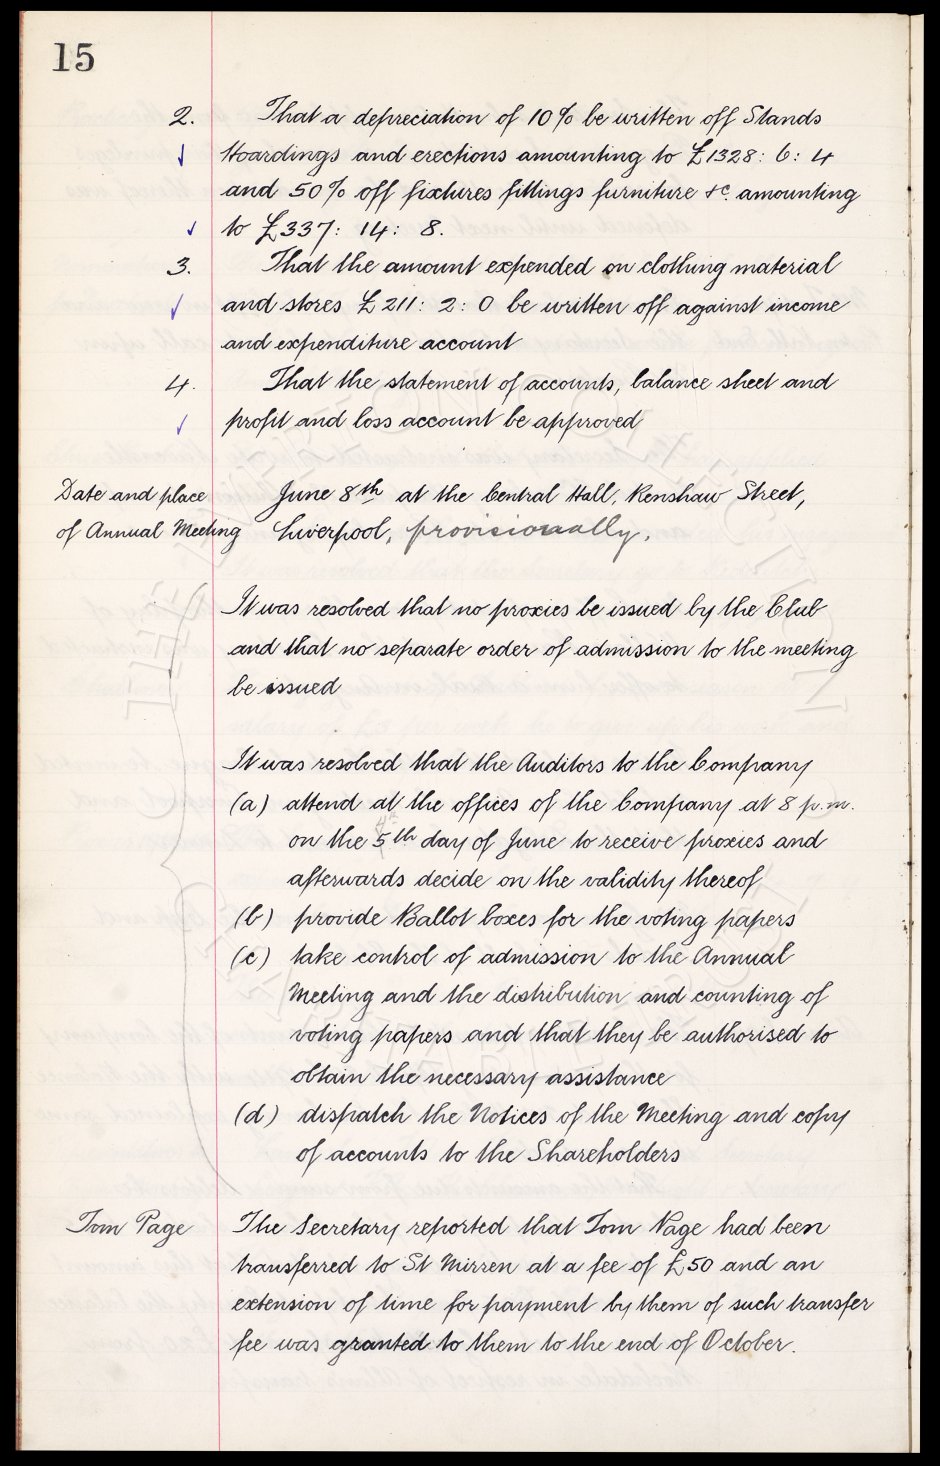 15
2. That a depreciation of 10% be written off Stands
Hoardings and erections amounting to £1328: 6: 4
and 50% off fixtures fittings furniture &c. amounting
to £337: 14: 8.
3. That the amount expended on clothing material
and stores £211: 2: 0 be written off against income
and expenditure account
4. That the statement of accounts, balance sheet and
profit and loss account be approved
Date and place June 8th at the Central Hall, Renshaw Street,
of Annual Meeting Liverpool, provisionally.
It was resolved that no proxies be issued by the Club
and that no separate order of admission to the meeting
be issued
It was resolved that the Auditors to the Company
(a) attend at the offices of the Company at 8 p.m.
on the 5th day of June to receive proxies and
afterwards decide on the validity thereof
(b) provide Ballot boxes for the voting papers
(c) take control of admission to the Annual
Meeting and the distribution and counting of
voting papers and that they be authorised to
obtain the necessary assistance
(d) dispatch the Notices of the Meeting and copy
of accounts to the Shareholders
Tom Page The Secretary reported that Tom Page had been
transferred to St Mirren at a fee of £50 and an
extension of time for payment by them of such transfer
fee was granted to them to the end of October.